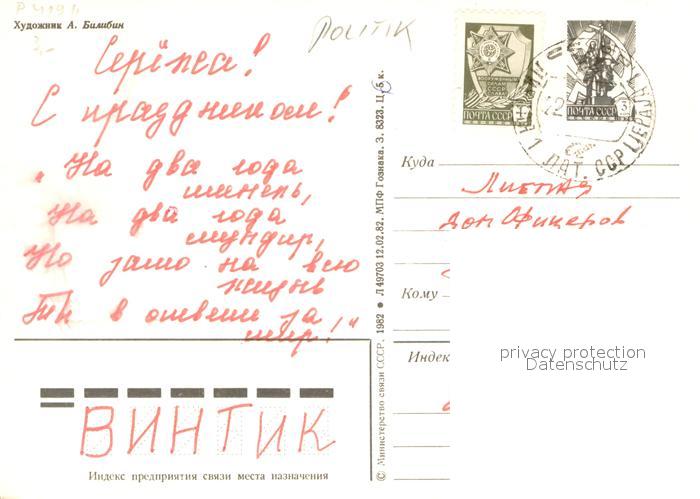 Р 4194
Художник А. Билибин
3,-
POLITIK
Серёжа!
С праздником!
„На два года
шинель,
На два года
мундир,
Но зато на всю
жизнь
Ты в ответе за
мир!"
ВИНТИК
Индекс предприятия связи места назначения
© Министерство связи СССР, 1982 ● Л 49703 12.02.82. МПФ Гознака. З. 8323. Ц. 5 к.
СССР
ПОЧТА СССР 1
ПОЧТА СССР 3
ЛАТ. ССР
Куда
Лиепая
дом Офицеров
Кому
Индек
privacy protection
Datenschutz